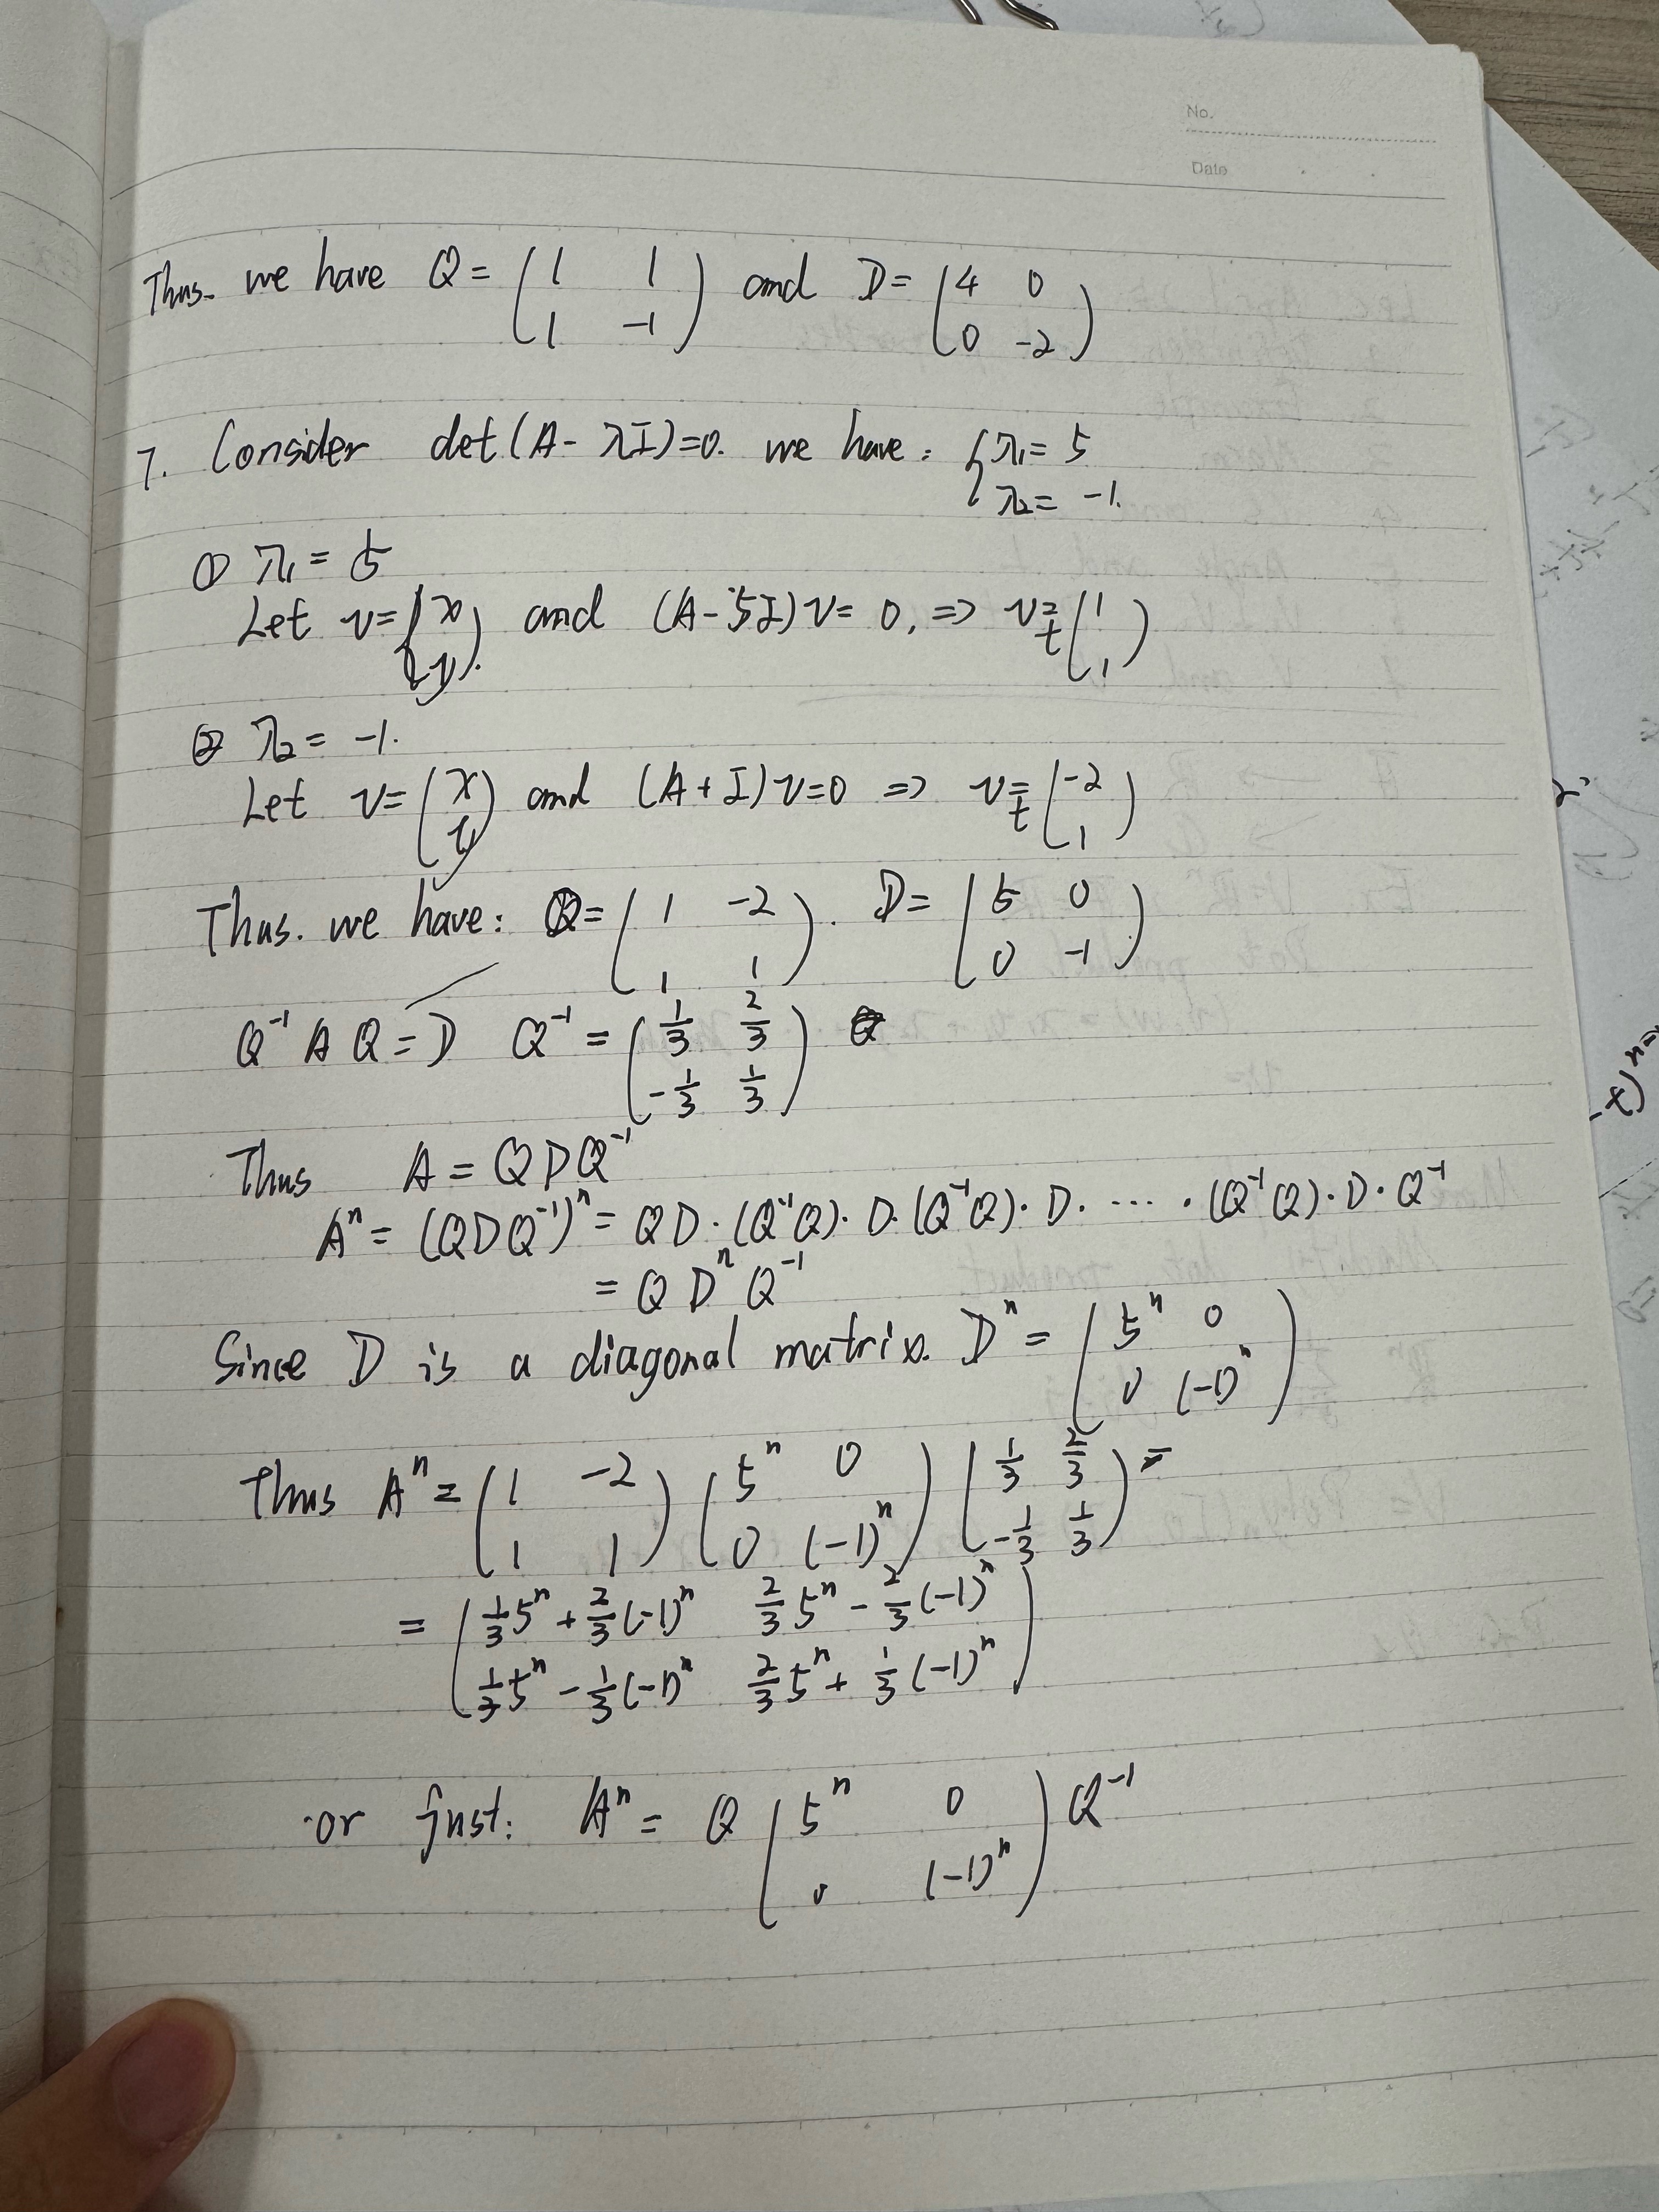 No.
Date
Thus. we have Q = ( 1 1 ; 1 -1 ) and D = ( 4 0 ; 0 -2 )
7. Consider det(A - λI)=0. we have: { λ1 = 5
λ2 = -1.
① λ1 = 5
Let v = ( x ; y ). and (A - 5I) v = 0, => v = t ( 1 ; 1 )
② λ2 = -1.
Let v = ( x ; y ) and (A + I) v = 0 => v = t ( -2 ; 1 )
Thus. we have: Q = ( 1 -2 ; 1 1 ). D = ( 5 0 ; 0 -1 )
Q⁻¹ A Q = D Q⁻¹ = ( 1/3 2/3 ; -1/3 1/3 )
Thus A = Q D Q⁻¹
Aⁿ = (Q D Q⁻¹)ⁿ = Q D · (Q⁻¹Q) · D · (Q⁻¹Q) · D · ···· · (Q⁻¹Q) · D · Q⁻¹
= Q Dⁿ Q⁻¹
Since D is a diagonal matrix. Dⁿ = ( 5ⁿ 0 ; 0 (-1)ⁿ )
Thus Aⁿ = ( 1 -2 ; 1 1 ) ( 5ⁿ 0 ; 0 (-1)ⁿ ) ( 1/3 2/3 ; -1/3 1/3 ) =
= ( 1/3 5ⁿ + 2/3 (-1)ⁿ 2/3 5ⁿ - 2/3 (-1)ⁿ ; 1/3 5ⁿ - 1/3 (-1)ⁿ 2/3 5ⁿ + 1/3 (-1)ⁿ )
or just: Aⁿ = Q ( 5ⁿ 0 ; 0 (-1)ⁿ ) Q⁻¹